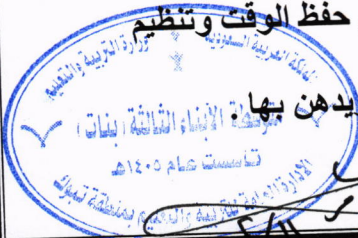 حفظ الوقت وتنظيم
المملكة العربية السعودية
وزارة التربية والتعليم
يدهن بها .
متوسطة الأبناء الثالثة (بنات)
تأسست عام ١٤٠٥هـ
الإدارة العامة للتربية والتعليم بمنطقة تبوك